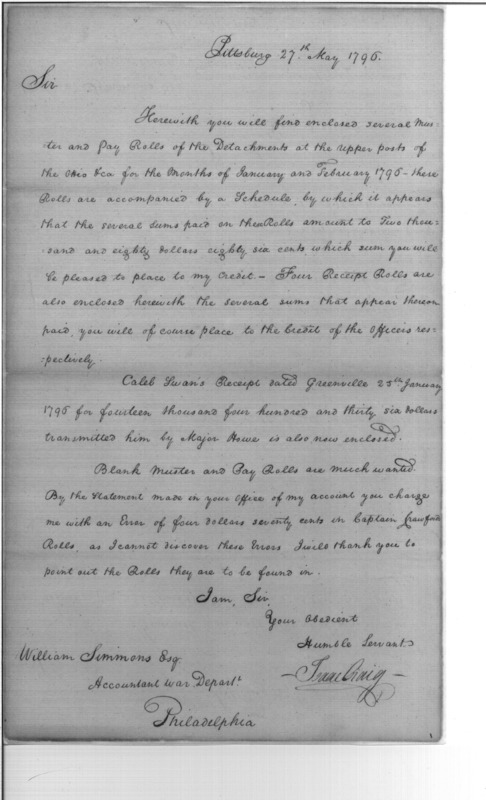 Pittsburg 27.th May 1796.
Sir
Herewith you will find enclosed several Mus-
-ter and Pay Rolls of the Detachments at the upper posts of
the Ohio &ca for the Months of January and February 1796 - these
Rolls are accompanied by a Schedule, by which it appears
that the several sums paid on these Rolls amount to Two thou-
-sand and eighty dollars eighty six cents which sum you will
be pleased to place to my Credit. - Four Receipt Rolls are
also enclosed herewith the several sums that appear thereon
paid, you will of course place to the Credit of the Officers res-
-pectively.
Caleb Swan's Receipt dated Greenville 25th January
1796 for fourteen thousand four hundred and thirty six dollars
transmitted him by Major Howe is also now enclosed.
Blank Muster and Pay Rolls are much wanted.
By the Statement made in your Office of my account you charge
me with an Error of four dollars seventy cents in Captain Crawford
Rolls, as I cannot discover these Errors I will thank you to
point out the Rolls they are to be found in.
I am, Sir,
Your Obedient
Humble Servant
Isaac Craig
William Simmons Esq.
Accountant War Depart.t
Philadelphia